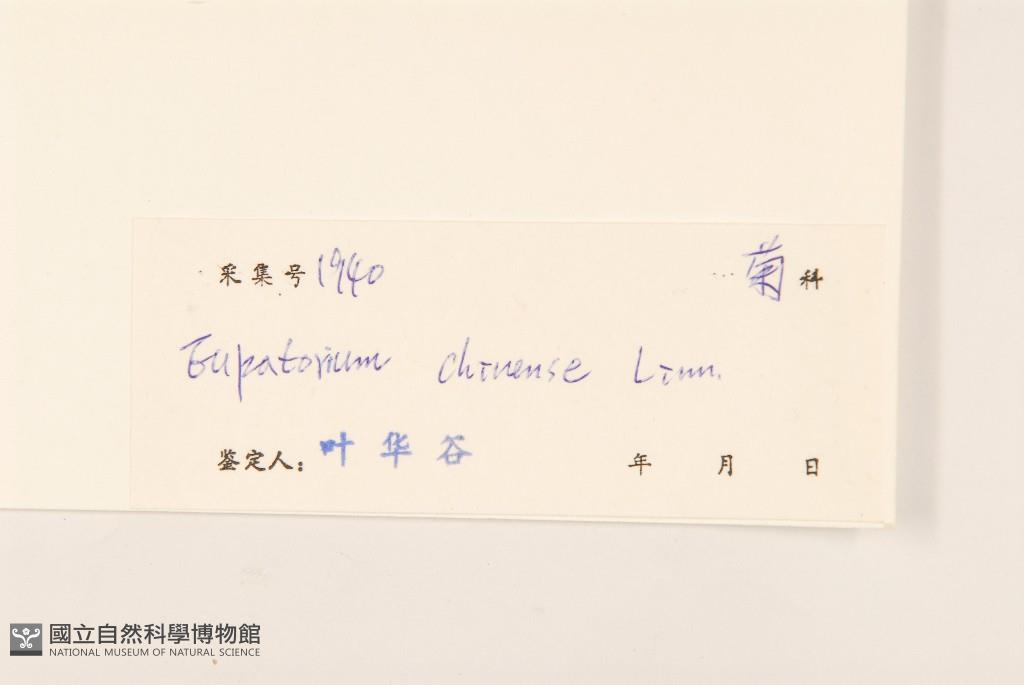 采集号 1940 菊科
Eupatorium chinense Linn.
鉴定人: 叶华谷 年 月 日
國立自然科學博物館
NATIONAL MUSEUM OF NATURAL SCIENCE